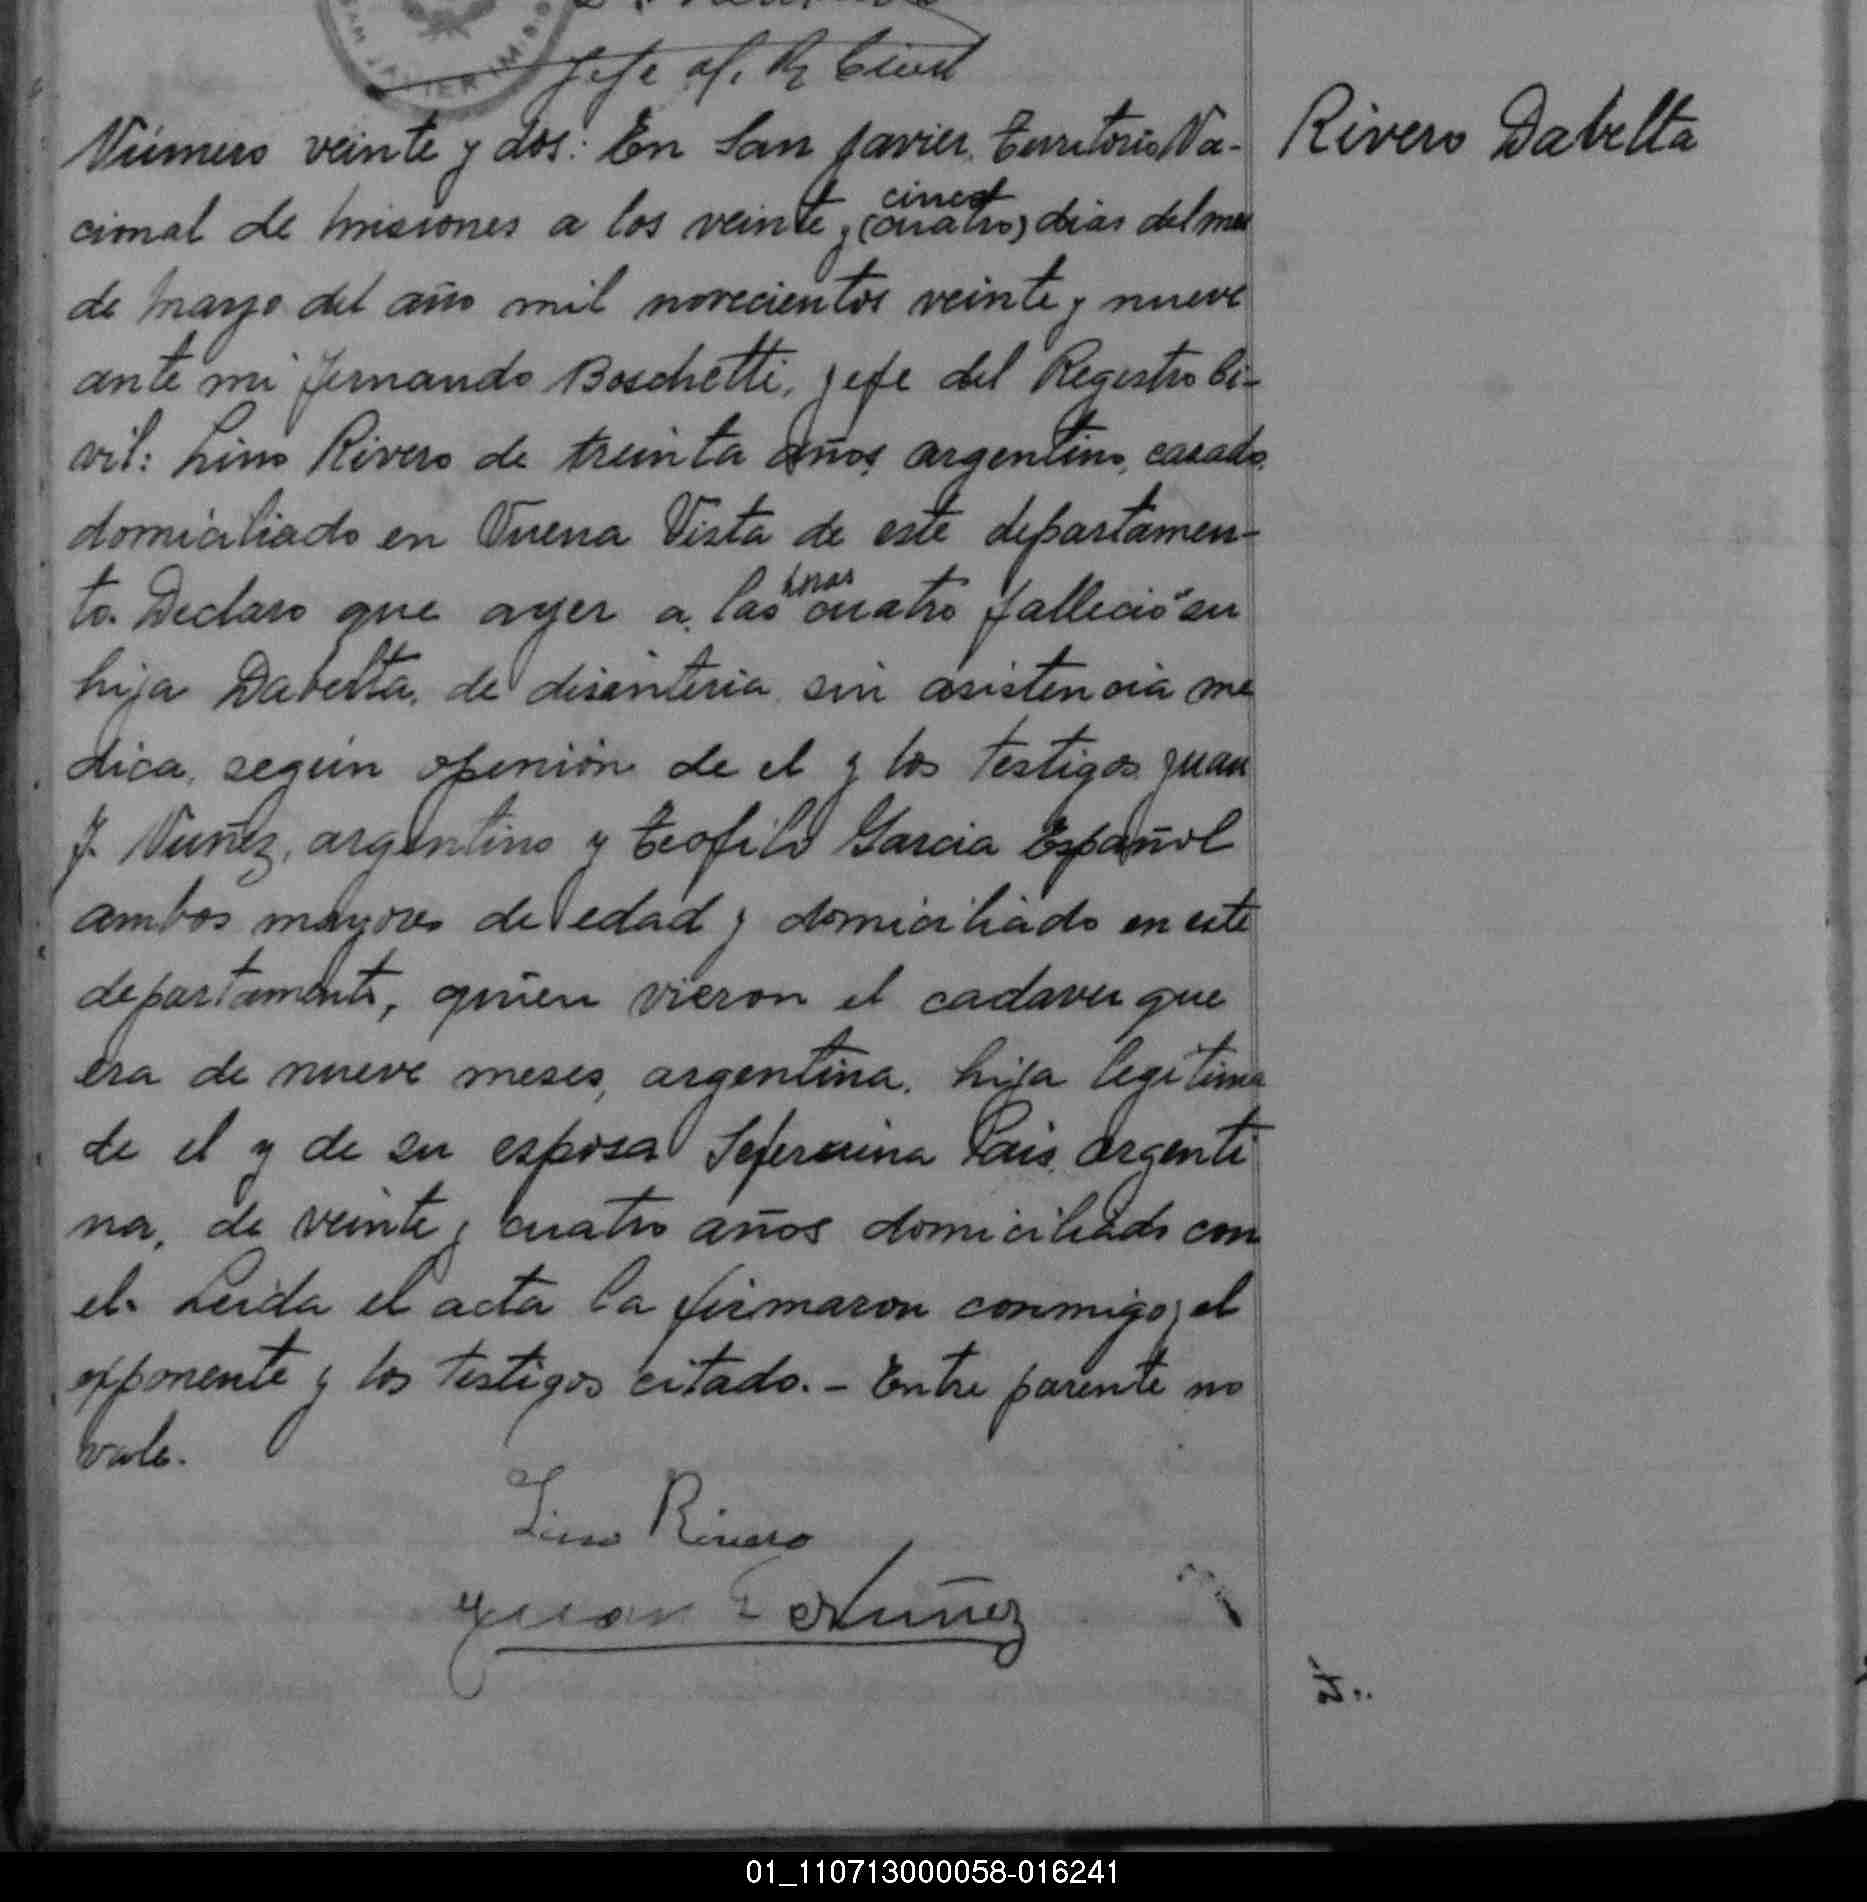 Jefe of. R. Civil
Número veinte y dos: En San Javier, Territorio Na- Rivero Dabelta
cional de Misiones a los veinte y (cuatro) cinco dias del mes
de Marzo del año mil novecientos veinte y nueve
ante mi Fernando Boschetti, Jefe del Registro Ci-
vil: Lino Rivero de treinta años, argentino, casado,
domiciliado en Vuena Vista de este departamen-
to. Declaro que ayer a las horas cuatro falleció su
hija Dabelta, de disinteria, sin asistencia me
dica, según opinión de el y los testigos Juan
J. Nuñez, argentino y Teofilo Garcia Español
ambos mayores de edad y domiciliado en este
departamento, quien vieron el cadaver que
era de nueve meses, argentina, hija legitima
de el y de su esposa Seferina Pais, argenti
na, de veinte y cuatro años domiciliado con
el. Leida el acta la firmaron conmigo, el
exponente y los testigos citado. - Entre parente no
vale.
Lino Rivero
Juan Nuñez
01_110713000058-016241